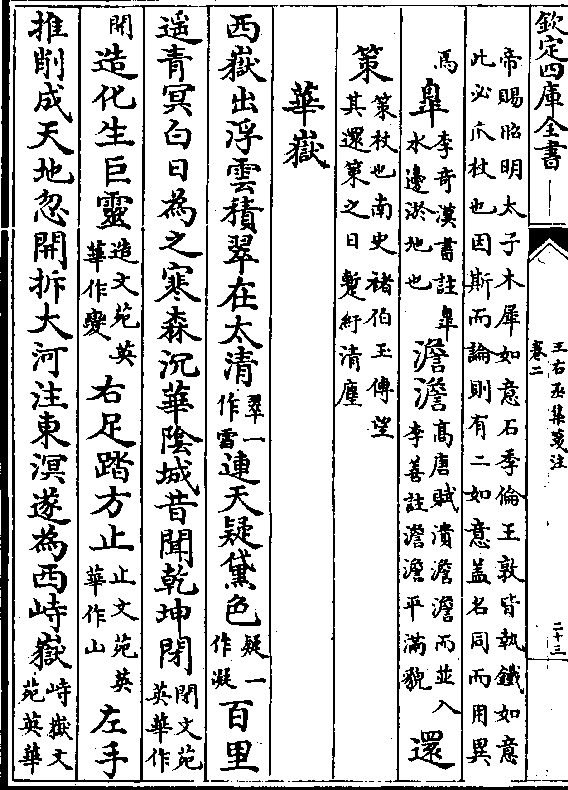 欽定四庫全書
王右丞集箋注
卷二
二十三
帝賜昭明太子木犀如意石季倫王敦皆執鐵如意
此必爪杖也因斯而論則有二如意盖名同而用異
焉 臯 李奇漢書註臯水邊淤地也 澹澹 髙唐賦潰澹澹而並入李善註澹澹平滿貌 還
策 策杖也南史褚伯玉傳望其還策之日蹔紆清塵
華嶽
西嶽出浮雲積翠在太清 翠一作雪 連天疑黛色 疑一作凝 百里
遥青冥白日為之寒森沉華陰城昔聞乾坤閉 閉文苑英華作
開 造化生巨靈 造文苑英華作變 右足踏方止 止文苑英華作山 左手
推削成天地忽開拆大河注東溟遂為西峙嶽 峙嶽文苑英華